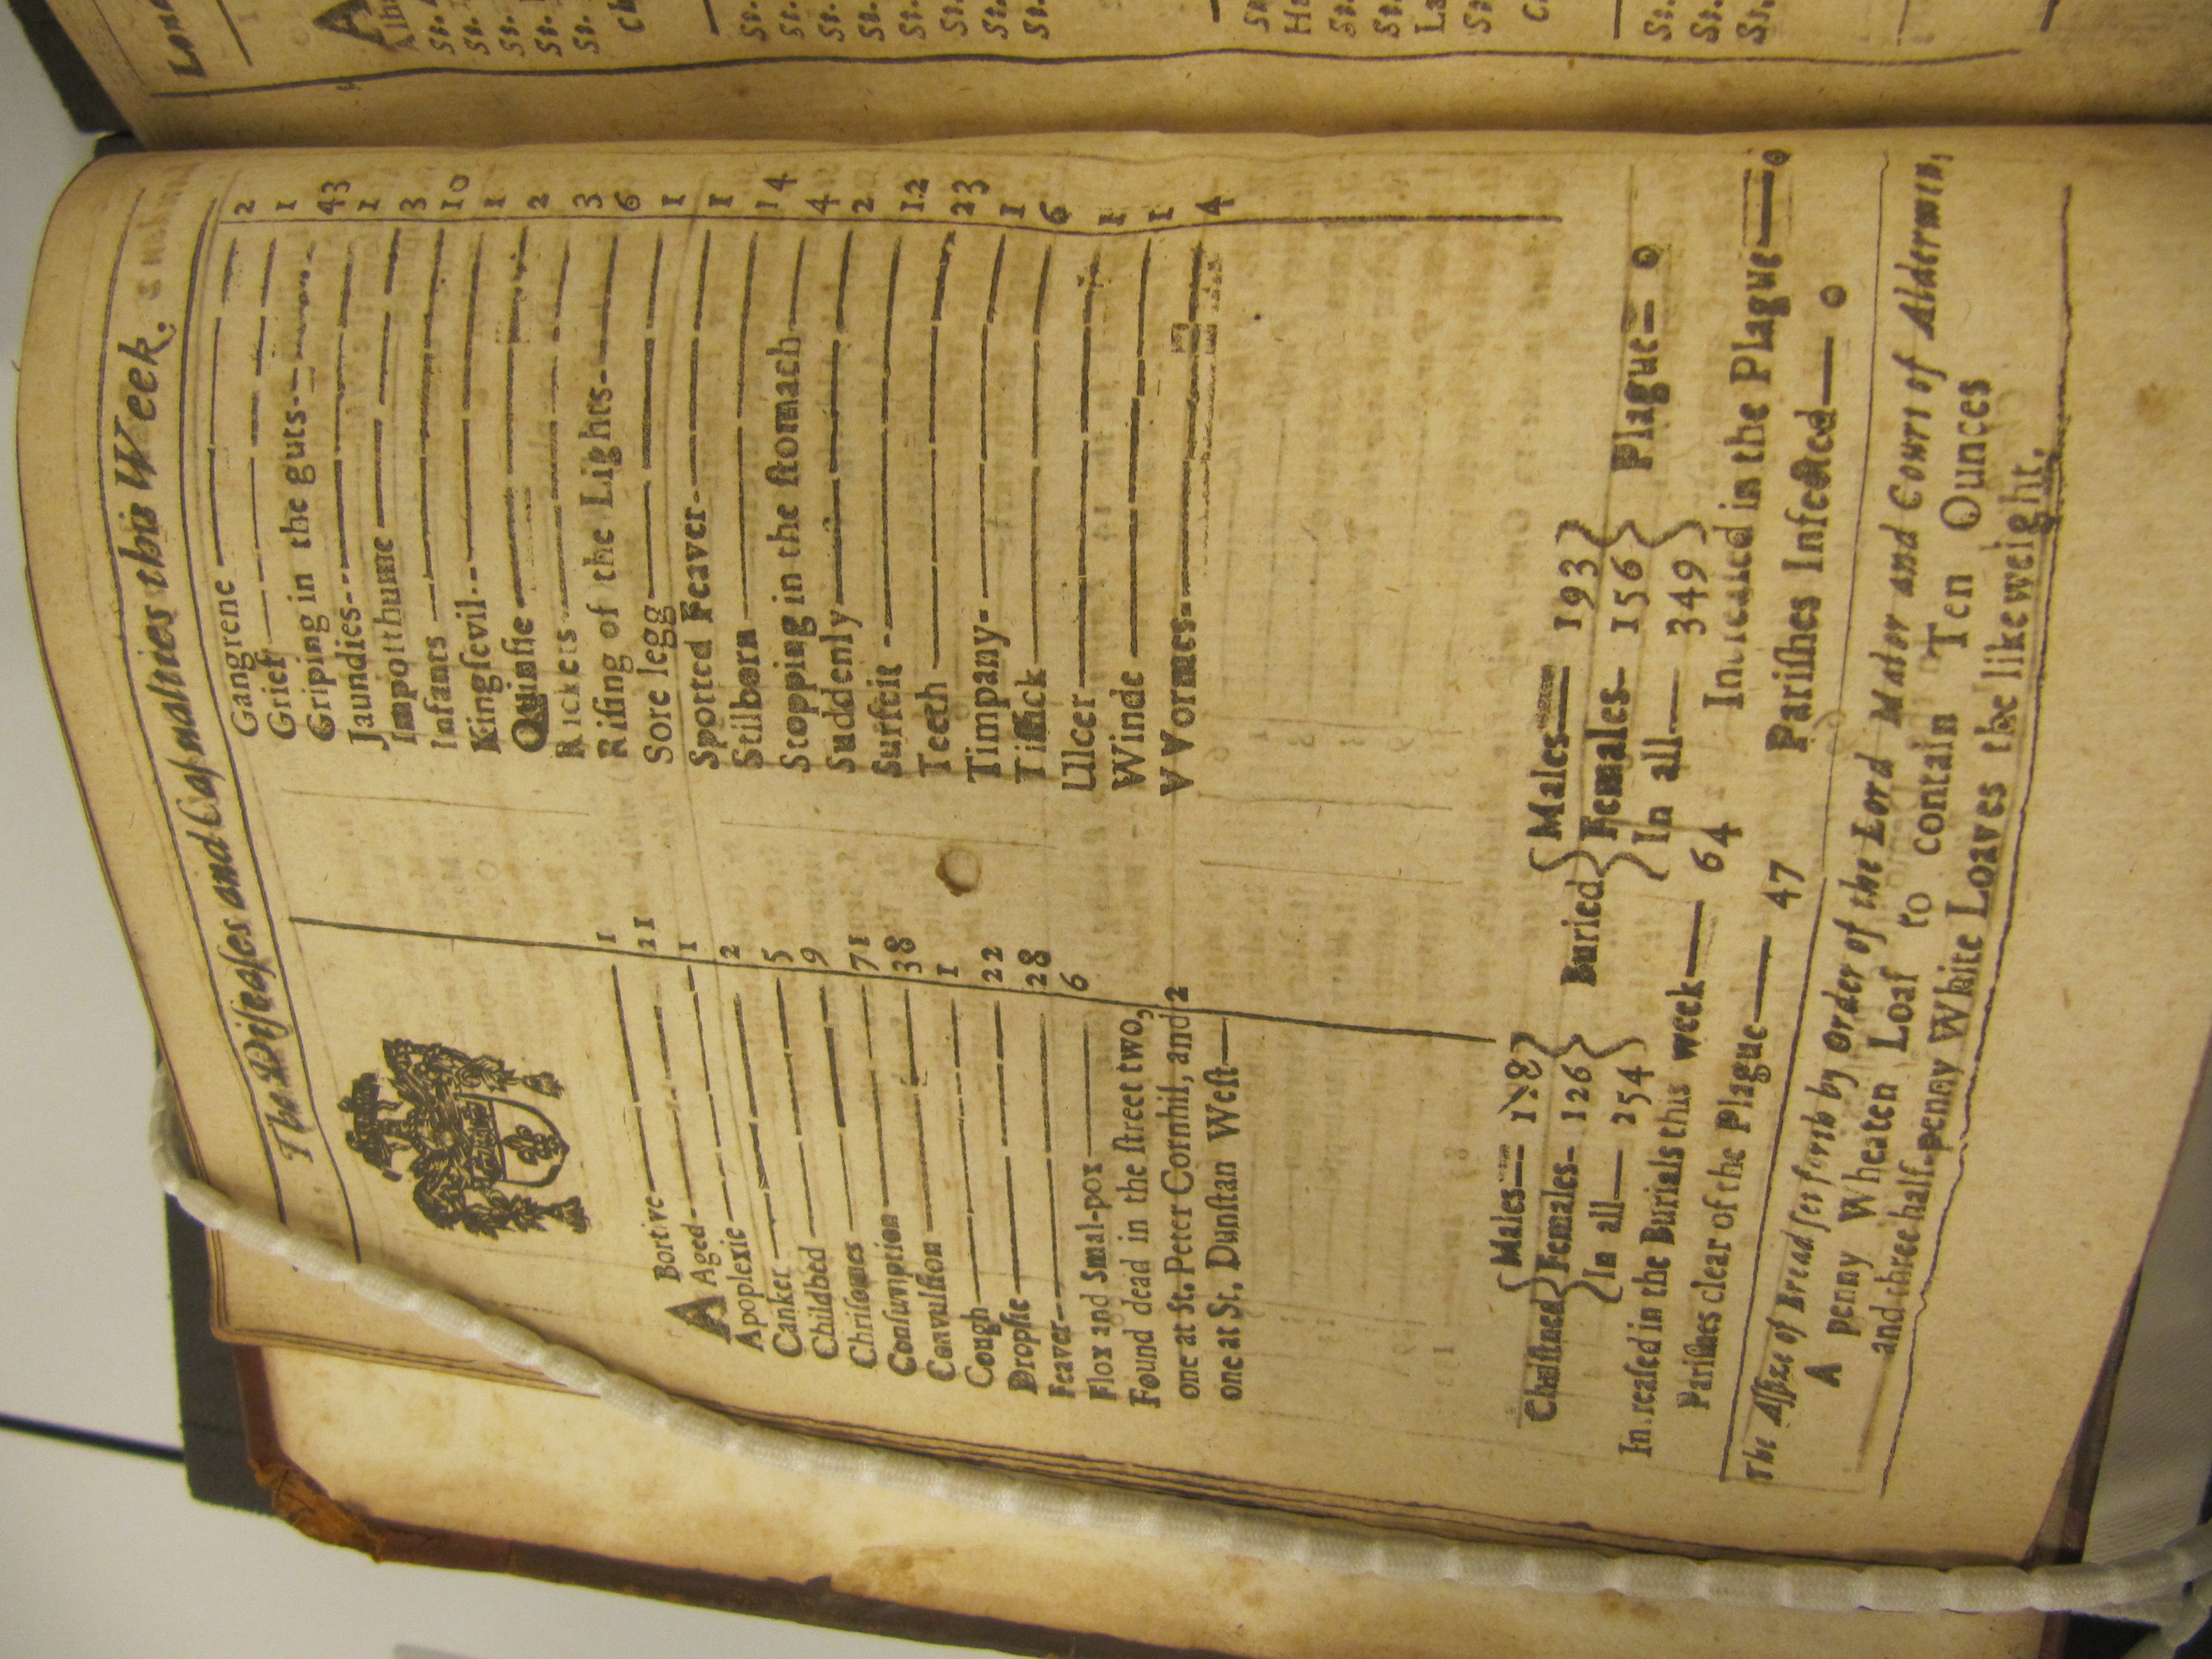 The Diſeaſes and Caſualties this Week.
ABortive — 1
Aged — 21
Apoplexie — 1
Canker — 2
Childbed — 5
Chriſomes — 9
Conſumption — 71
Convulſion — 38
Cough — 1
Dropſie — 22
Feaver — 28
Flox and Small-pox — 6
Found dead in the ſtreet two,
one at St. Peter Cornhil, and
one at St. Dunſtan Weſt — 2
Gangrene — 2
Grief — 1
Griping in the guts — 43
Jaundies — 1
Impoſthume — 3
Infants — 10
Kingſevil — 1
Quinſie — 2
Rickets — 3
Riſing of the Lights — 6
Sore legg — 1
Spotted Feaver — 1
Stilborn — 14
Stopping in the ſtomach — 4
Suddenly — 2
Surfeit — 12
Teeth — 23
Timpany — 1
Tiſſick — 6
Ulcer — 1
Winde — 1
VVormes — 4
Chriſtned { Males — 128
Females — 126
In all — 254 }
Buried { Males — 193
Females — 156
In all — 349 } Plague — 0
Increaſed in the Burials this week — 64
Increaſed in the Plague — 0
Pariſhes clear of the Plague — 47
Pariſhes Infected — 0
The Aſſize of Bread ſet forth by Order of the Lord Maior and Court of Aldermen,
A penny Wheaten Loaf to contain Ten Ounces
and three half-penny White Loaves the like weight.